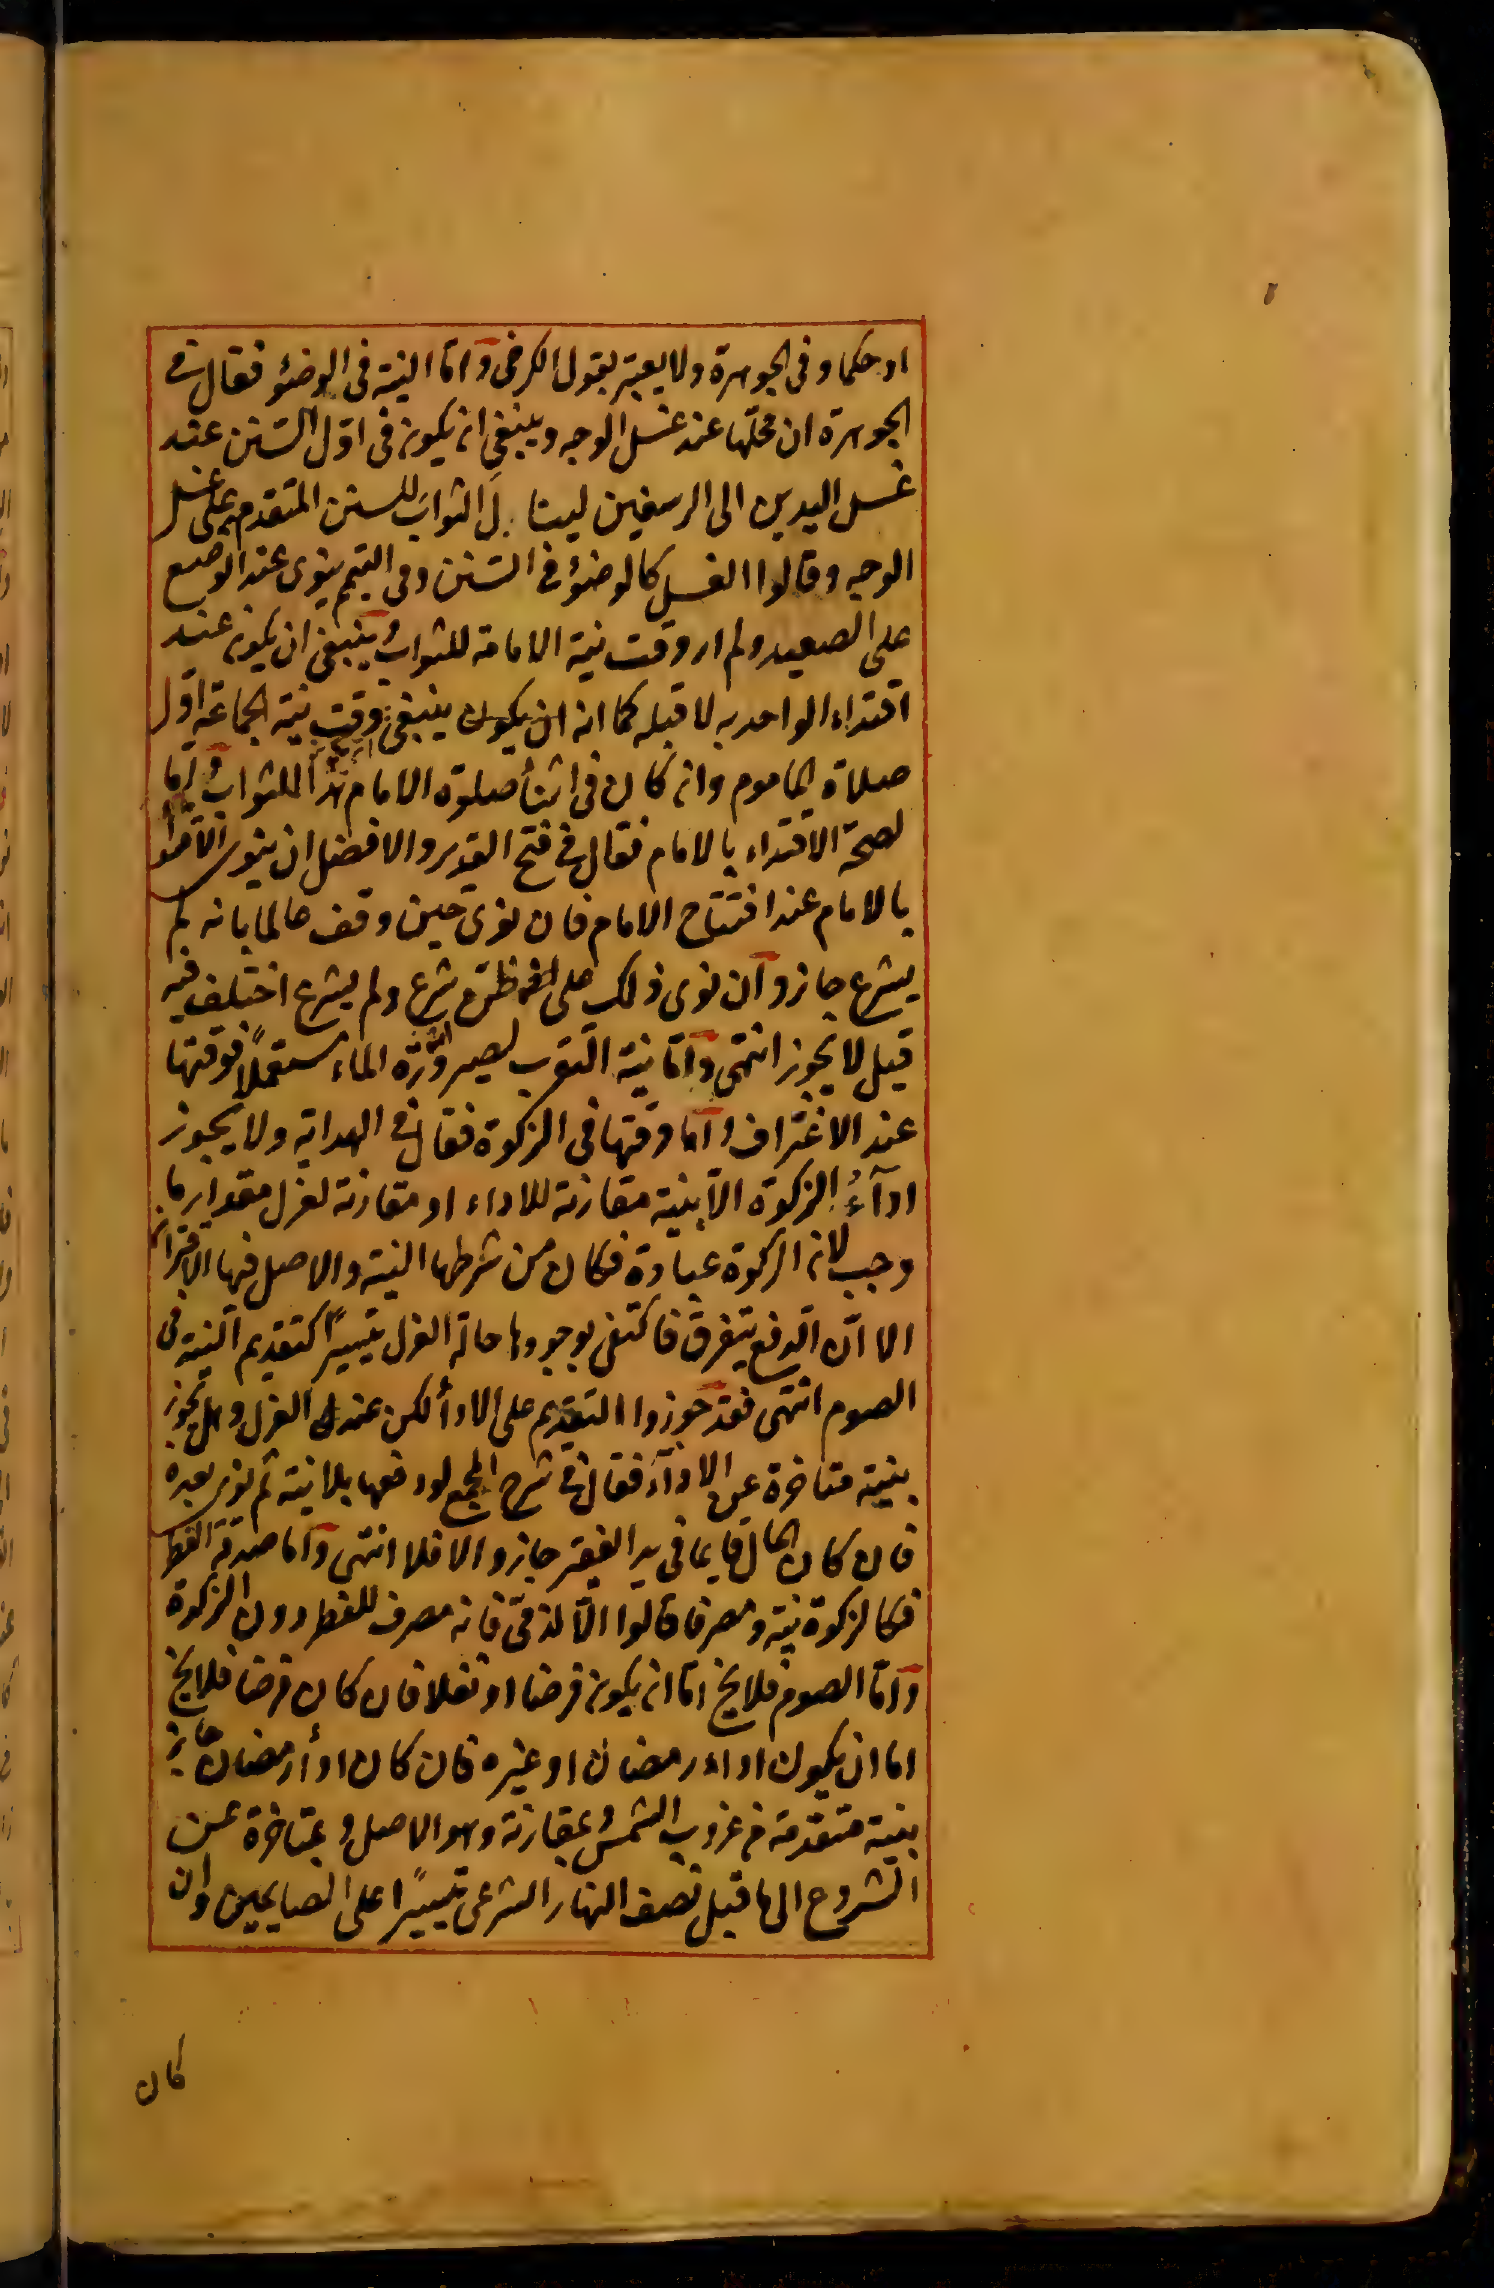 او حكما وفى الجوهرة ولا يعتبر بقول الكرخى وامّا النية فى الوضؤ فقال فى
الجوهرة ان محلّها عند غسل الوجه وينبغى ان يكون فى اوّل السّنن عند
غسل اليدين الى الرسغين لينال الثوابَ للسنن المتقدم على غسل
الوجه وقالوا الغسل كالوضؤ فى السّنن وفى التيمم ينوى عند الوضع
على الصعيد ولم ار وقت نية الامامة للثواب وينبغى ان يكون عند
اقتداء الواحد به لا قبله كما انه ان يكون ينبغى وقت نية الجماعة اوّل
صلاة المأموم وان كان فى اثنأ صلوة الامام هذا للثواب وامّا
لصحّة الاقتداء بالامام فقال فى فتح القدير والافضل ان ينوى الاقتدأ
بالامام عند افتتاح الامام فان نوى حين وقف عالما بانه لم
يشرع جاز وان نوى ذلك على ظنّ شرع ولم يشرع اختلف فيه
قيل لا يجوز انتهى وامّا نية التقرب لصيرورة الماء مستعملًا فوقتها
عند الاغتراف وامّا وقتها فى الزكوة فقال فى الهداية ولا يجوز
ادآءُ الزكوة الّا بنية مقارنة للاداء او مقارنة لعزل مقدار ما
وجب لان الزكوة عبادة فكان من شرطها النية والاصل فيها الاقتران
الا انّ الدفع يتفرق فاكتفى بوجودها حالة العزل تيسيرًا كتقديم النية فى
الصوم انتهى فقد جوزوا التقديم على الادأ لكن عند العزل وهل يجوز
بنية متاخرة عن الادآء فقال فى شرح المجمع لو دفعها بلا نية ثم نوى بعده
فان كان المال قايما فى يد الفقير جاز والا فلا انتهى وامّا صدقة الفطر
فكالزكوة نية ومصرفا قالوا الّا الذمّى فانه مصرف للفطر دون الزكوة
وامّا الصوم فلا يخ امّا ان يكون فرضا او نفلا فان كان فرضا فلا يخ
اما ان يكون اداء رمضان او غيره فان كان ادأ رمضان جاز
بنية متقدمة من غروب الشمس وبمقارنة وهو الاصل وبمتاخرة عن
الشروع الى ما قبل نصف النهار الشرعى تيسيرًا على الصايمين وان
كان